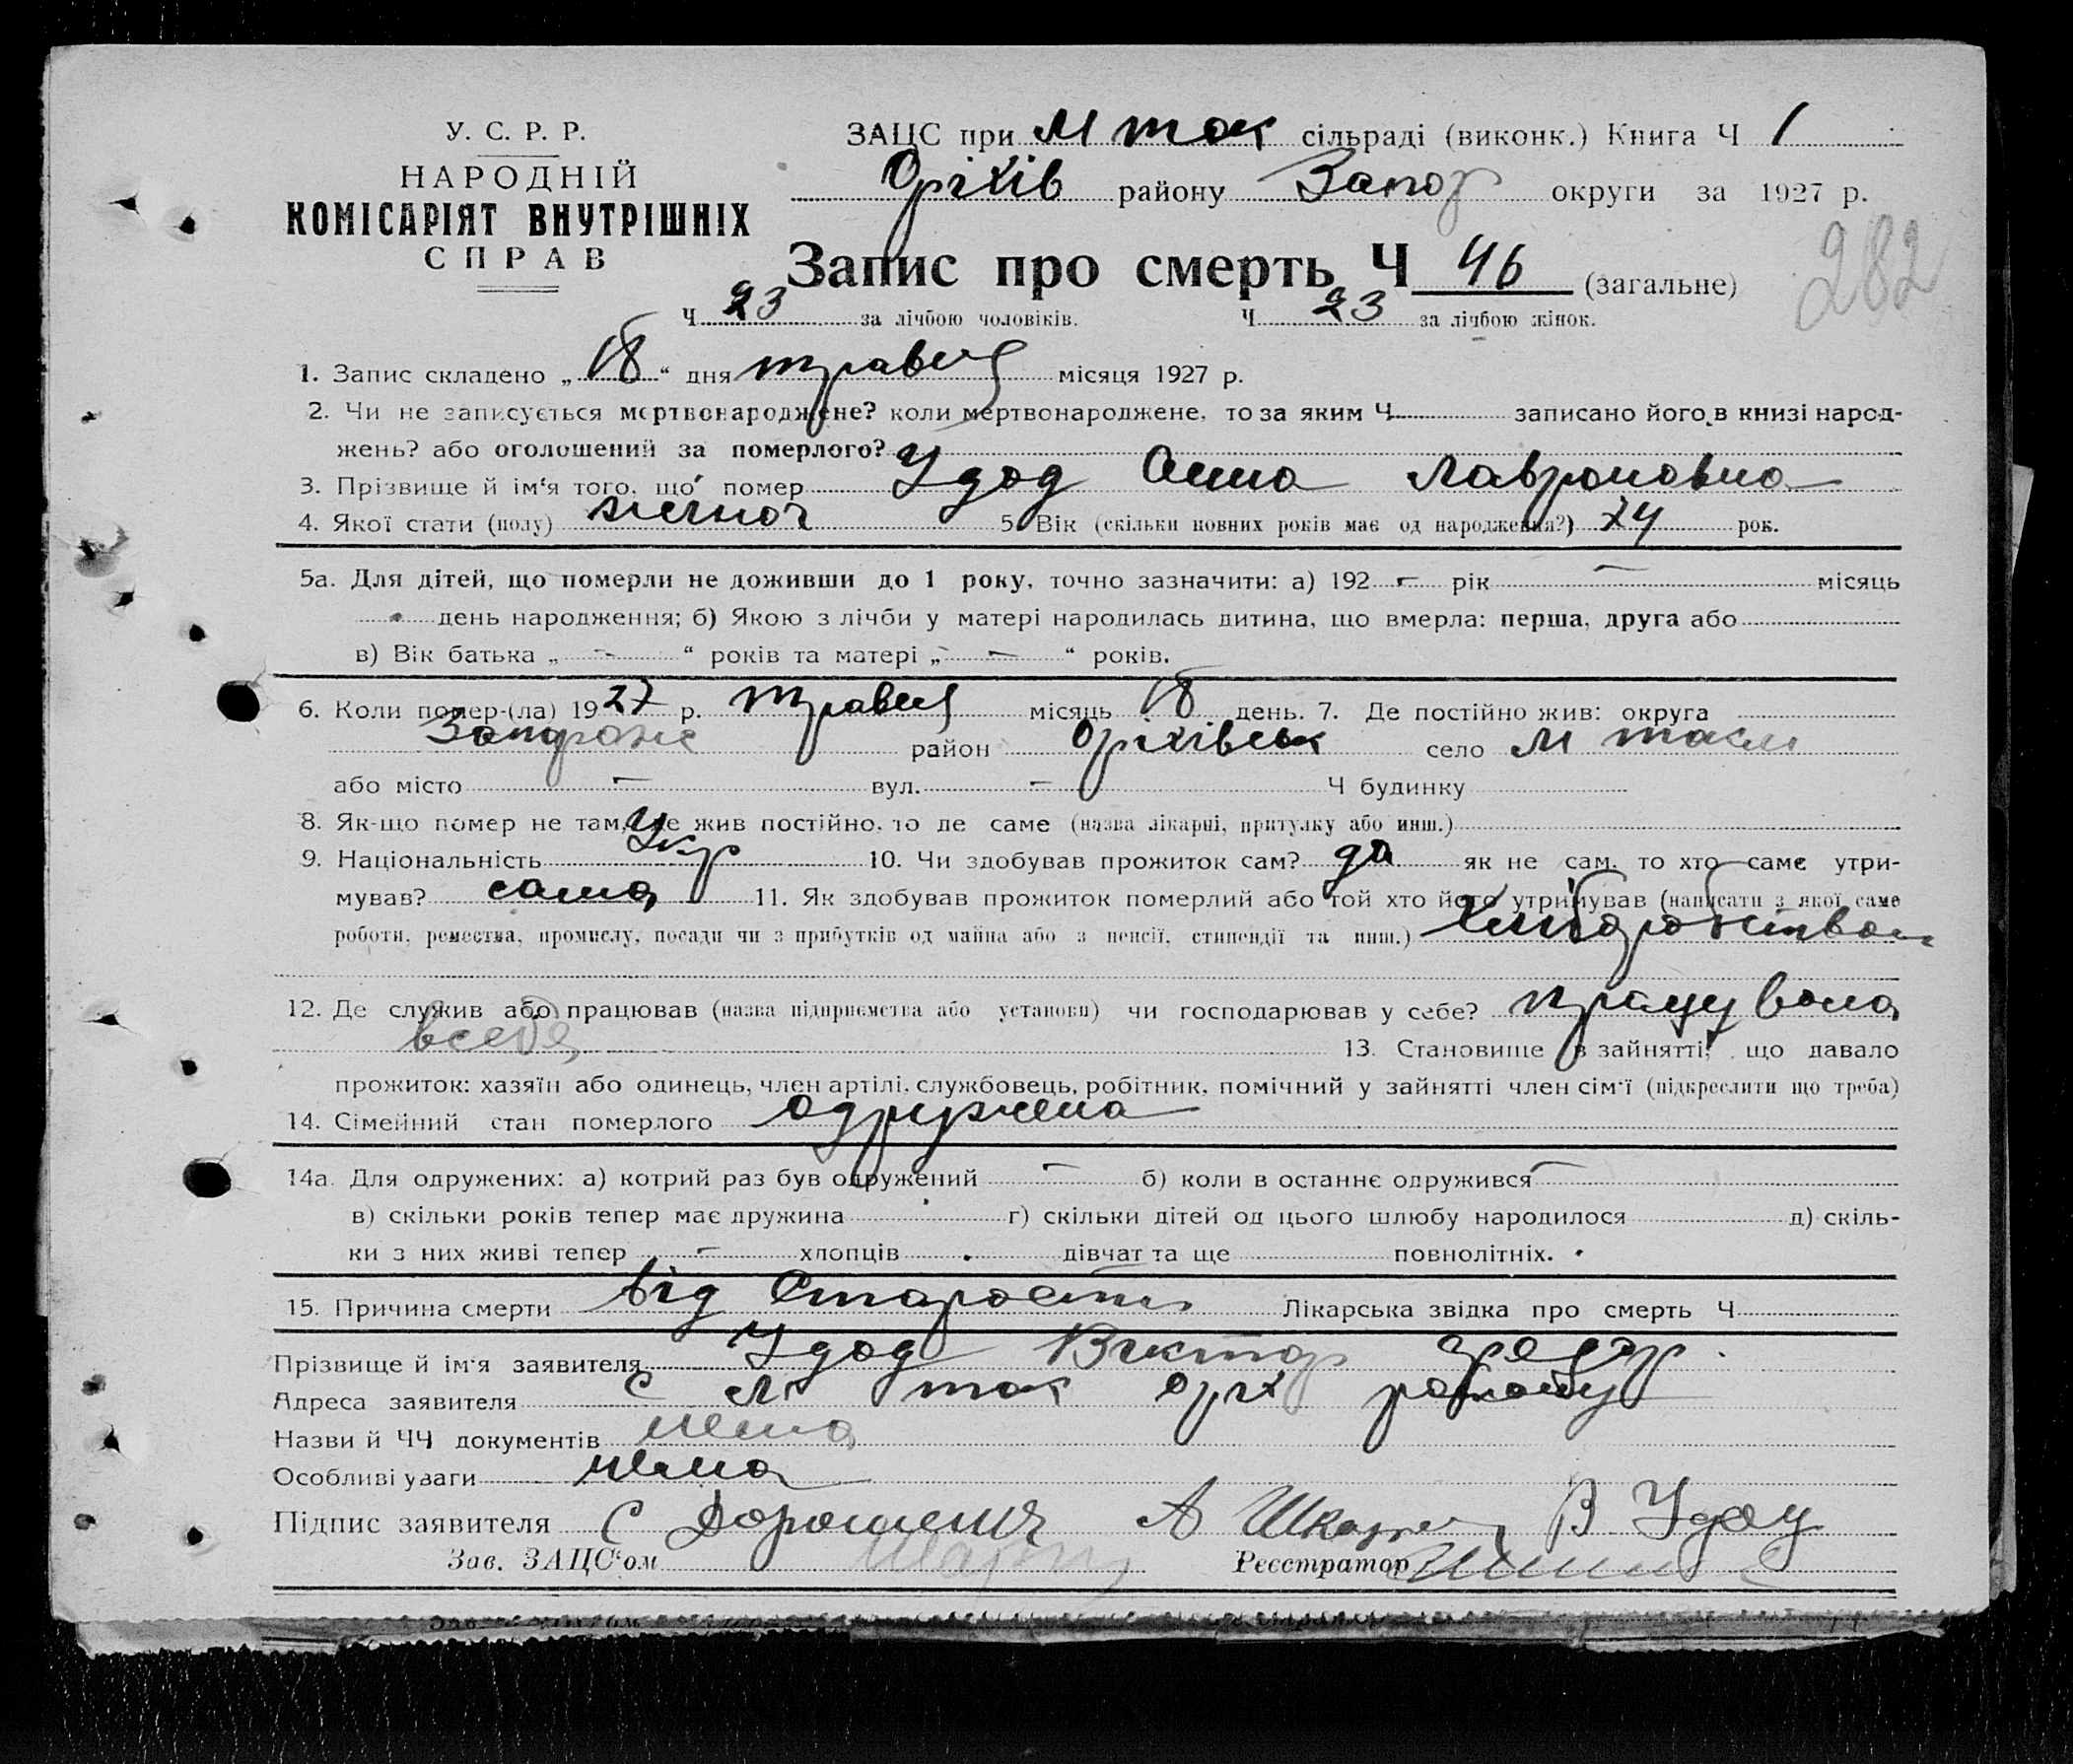 У. С. Р. Р.
НАРОДНІЙ
КОМІСАРІЯТ ВНУТРІШНІХ
СПРАВ
ЗАЦС при М ток сільраді (виконк.) Книга Ч 1
Оріхів району Запор округи за 1927 р.
282
Запис про смерть Ч 46 (загальне)
Ч 23 за лічбою чоловіків. Ч 23 за лічбою жінок.
1. Запис складено „ 18 “ дня травня місяця 1927 р.
2. Чи не записується мертвонароджене? коли мертвонароджене, то за яким Ч записано його в книзі народ-
жень? або оголошений за померлого?
3. Прізвище й ім'я того, що помер Удод Анна Лавроновна
4. Якої стати (полу) жіночої 5. Вік (скільки повних років має од народження?) 74 рок.
5а. Для дітей, що померли не доживши до 1 року, точно зазначити: а) 192 — рік — місяць
день народження; б) Якою з лічби у матері народилась дитина, що вмерла: перша, друга або
в) Вік батька „ — “ років та матері „ — “ років.
6. Коли помер-(ла) 1927 р. травня місяць 18 день. 7. Де постійно жив: округа
Запоріжс район Оріхівськ село М
або місто — вул. — Ч будинку
8. Як-що помер не там, де жив постійно, то де саме (назва лікарні, притулку або инш.)
9. Національність Укр 10. Чи здобував прожиток сам? да як не сам, то хто саме утри-
мував? сама 11. Як здобував прожиток померлий або той хто його утримував (написати з якої саме
роботи, ремества, промислу, посади чи з прибутків од майна або з пенсії, стипендії та инш.) Хліборобством
12. Де служив або працював (назва підприємства або установи) чи господарював у себе? працювала
в себе 13. Становище в зайнятті, що давало
прожиток: хазяїн або одинець, член артілі, службовець, робітник, помічний у зайнятті член сім'ї (підкреслити що треба)
14. Сімейний стан померлого одружена
14а. Для одружених: а) котрий раз був одружений — б) коли в останнє одружився —
в) скільки років тепер має дружина г) скільки дітей од цього шлюбу народилося д) скіль-
ки з них живі тепер — хлопців дівчат та ще повнолітніх.
15. Причина смерти від Старости Лікарська звідка про смерть Ч
Прізвище й ім'я заявителя Удод Віктор
Адреса заявителя С М ток Оріх району
Назви й ЧЧ документів нема
Особливі уваги нема
Підпис заявителя С Дорошенко А В Удод
Зав. ЗАЦС'ом Реєстратор